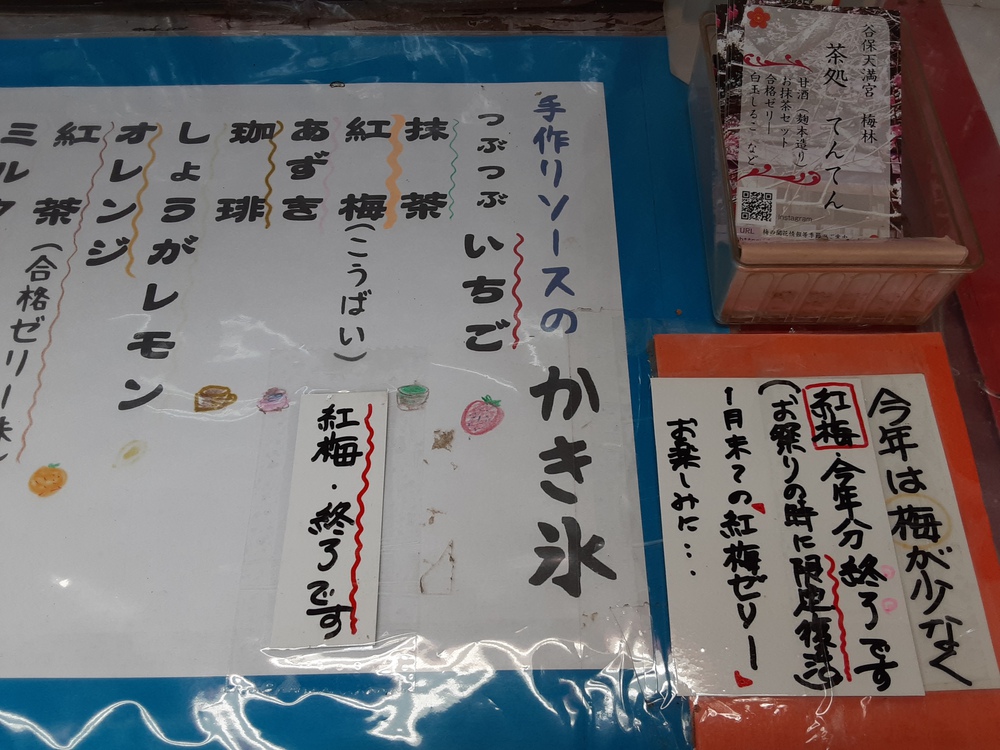 手作りソースの
かき氷
つぶつぶ いちご
抹茶
紅梅(こうばい)
あずき
珈琲
しょうがレモン
オレンジ
紅茶(合格ゼリー
ミルク
紅梅・終了です
谷保天満宮 梅林
茶処 てんてん
甘酒(麹本造り)
お抹茶セット
合格ゼリー
白玉しるこ など
Instagram
URL
今年は梅が少なく
紅梅・今年分終了です
(お祭りの時に限定復活)
1月末での紅梅ゼリー
お楽しみに・・・